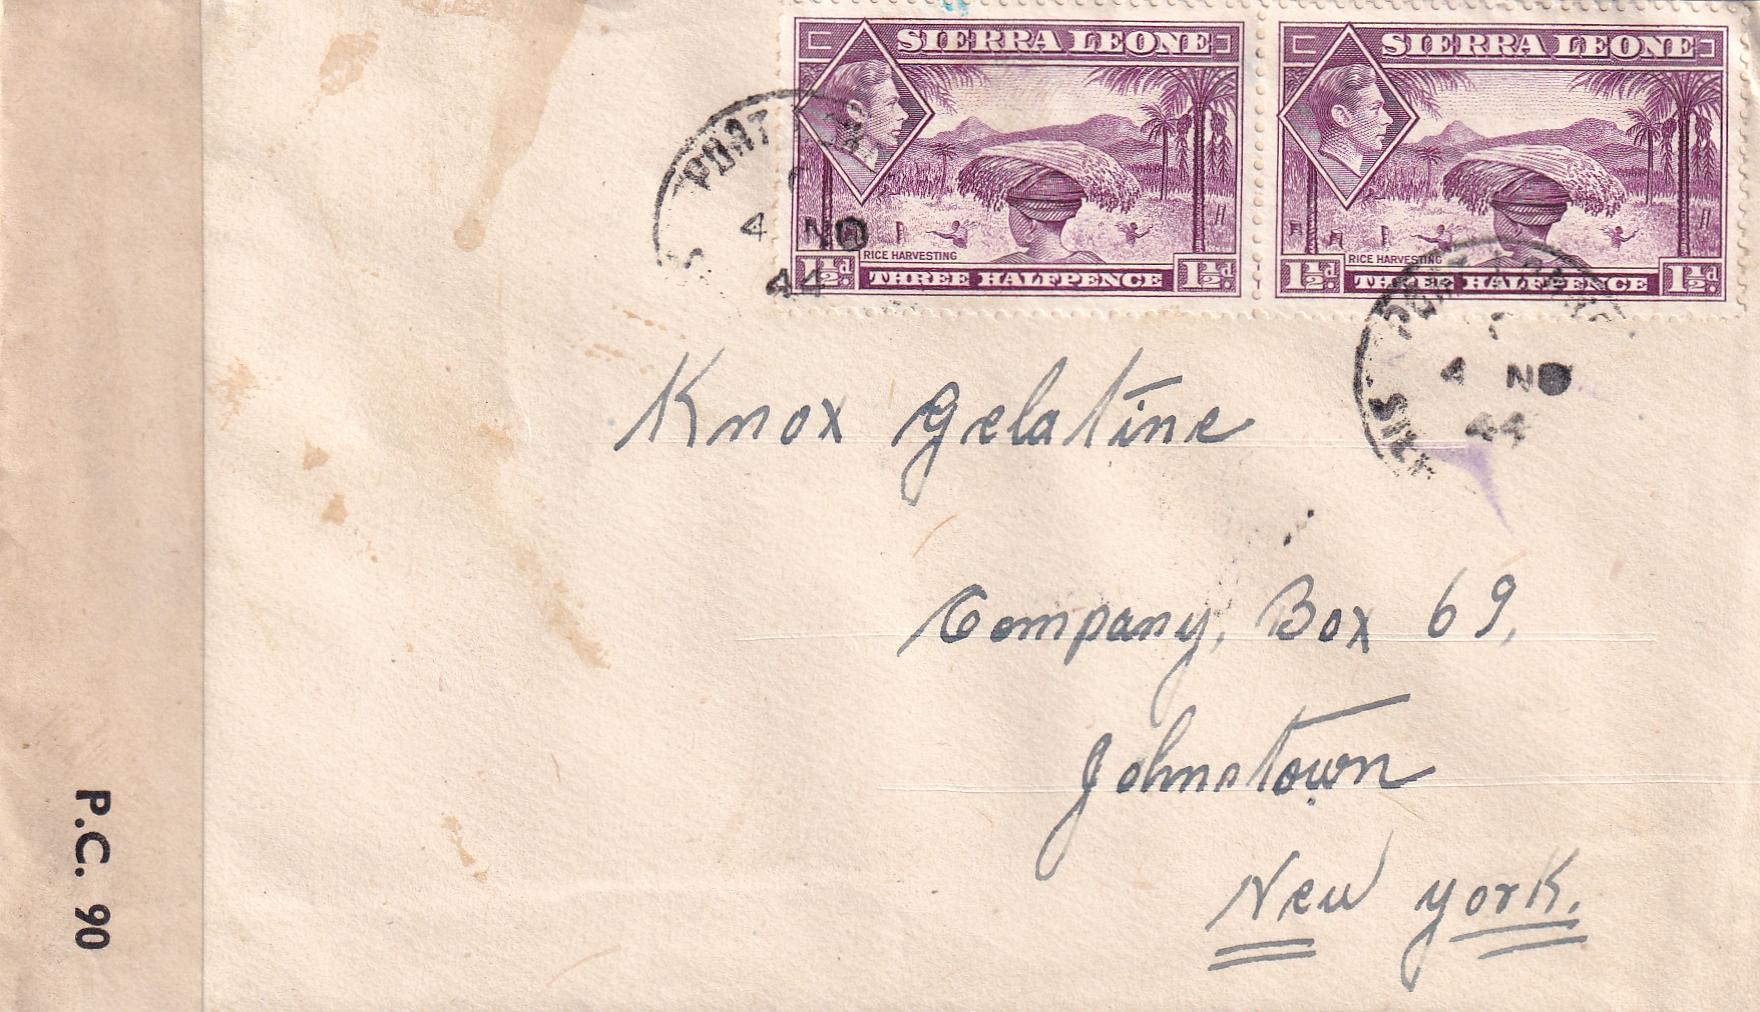 SIERRA LEONE
RICE HARVESTING
1½d. THREE HALFPENCE 1½d.
SIERRA LEONE
RICE HARVESTING
1½d. THREE HALFPENCE 1½d.
PORT
4 NO
44
PORT
4 NO
44
Knox Gelatine
Company, Box 69,
Johnstown
New York.
P.C. 90